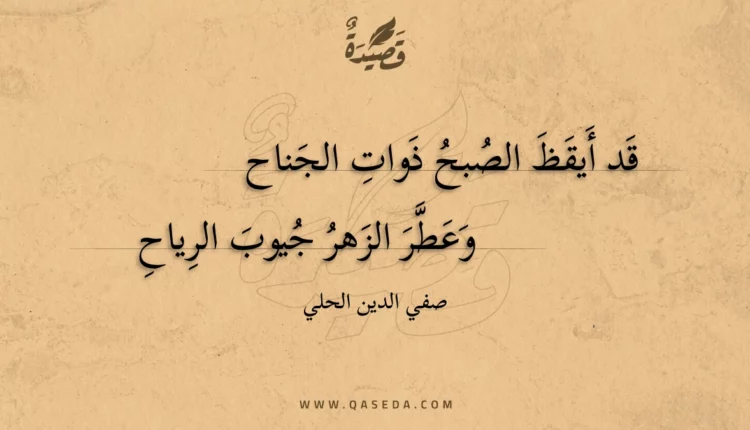 قَصِيْدَةٌ
قَد أَيقَظَ الصُبحُ ذَواتِ الجَناح
وَعَطَّرَ الزَهرُ جُيوبَ الرِياحِ
صفي الدين الحلي
WWW.QASEDA.COM